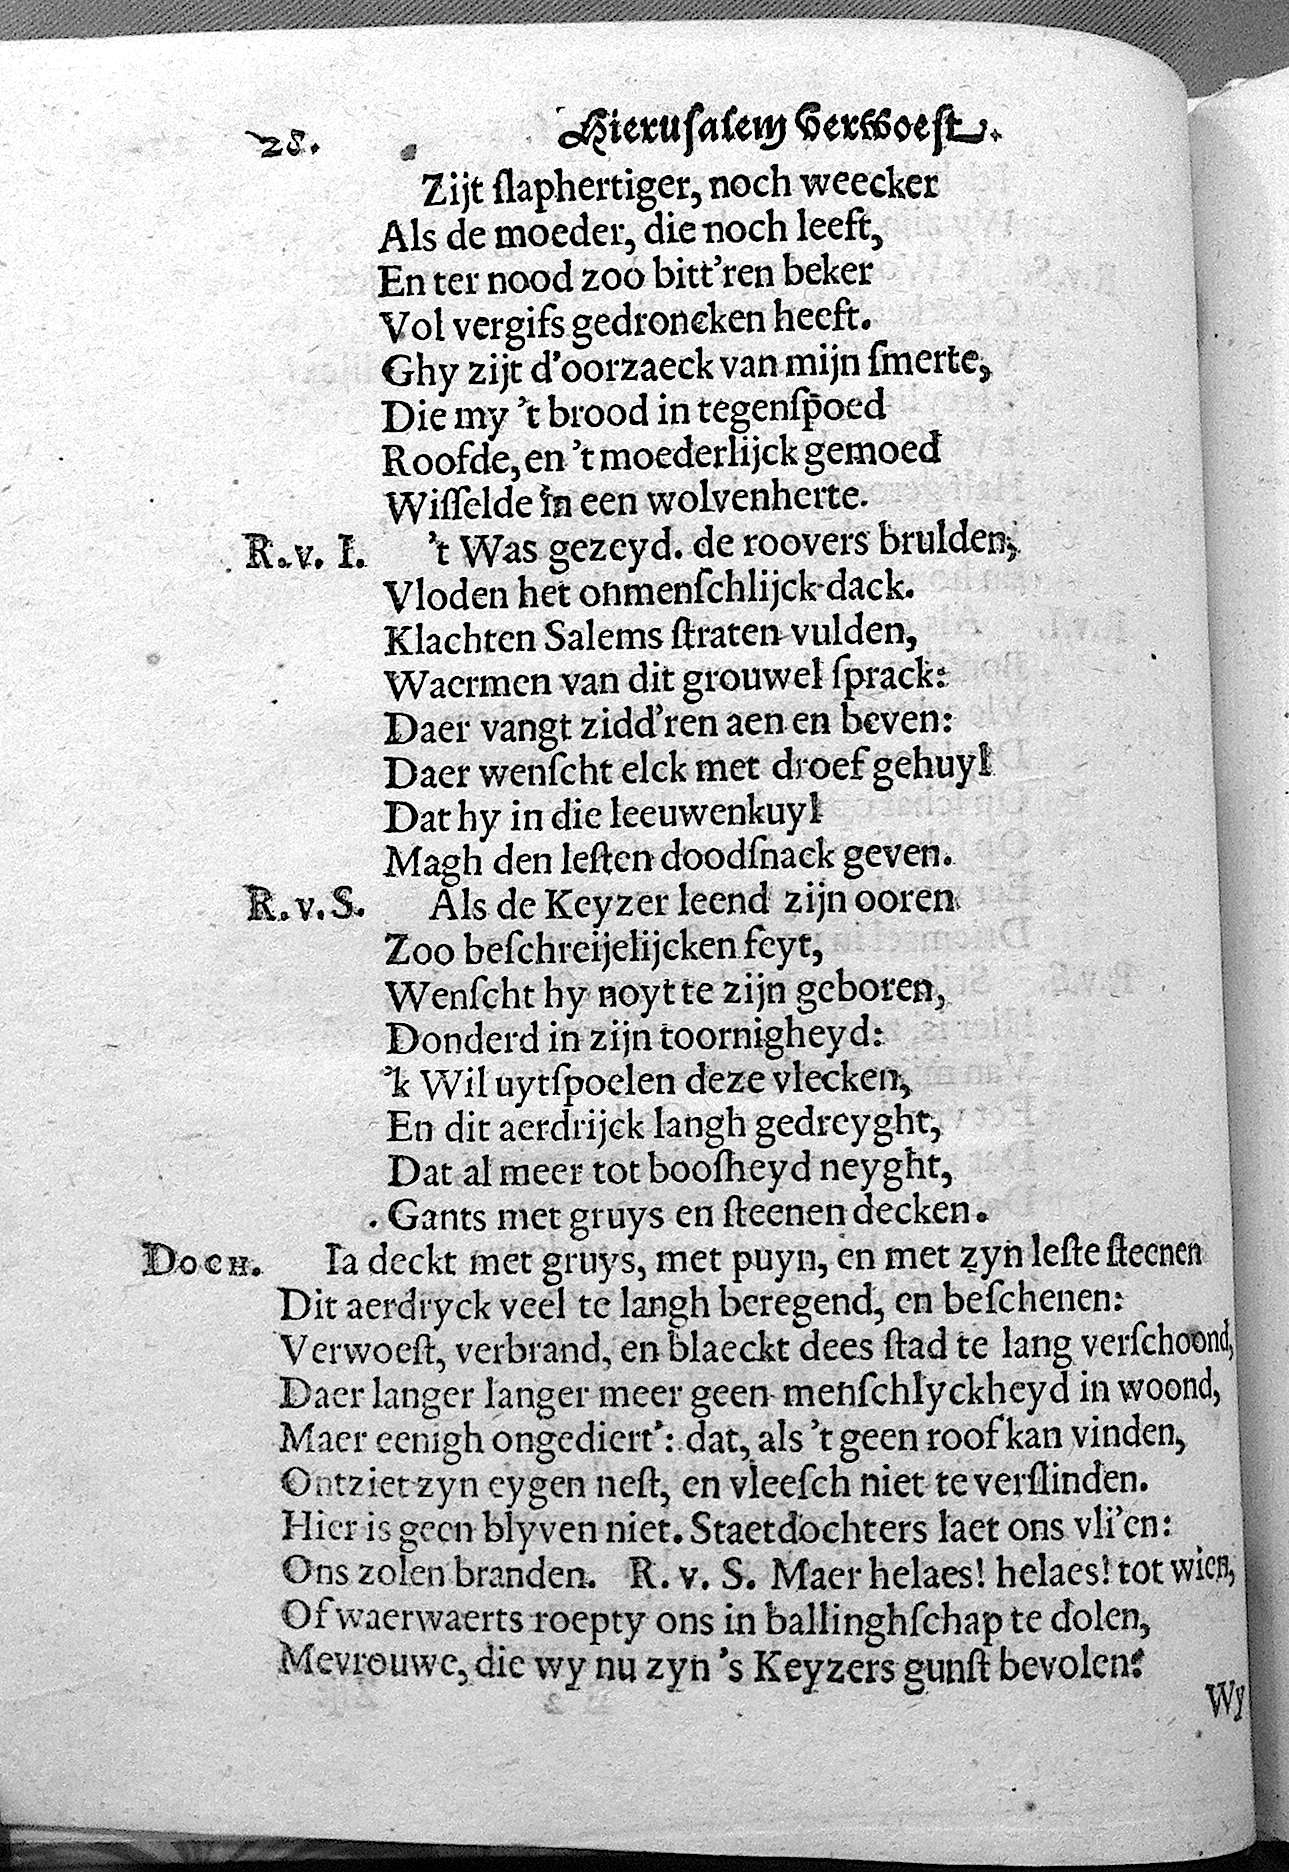 28. Hierusalem verwoest.
Zijt slaphertiger, noch weecker
Als de moeder, die noch leeft,
En ter nood zoo bitt'ren beker
Vol vergifs gedroncken heeft.
Ghy zijt d'oorzaeck van mijn smerte,
Die my 't brood in tegenspoed
Roofde, en 't moederlijck gemoed
Wisselde in een wolvenherte.
R.v. I. 't Was gezeyd. de roovers brulden,
Vloden het onmenschlijck dack.
Klachten Salems straten vulden,
Waermen van dit grouwel sprack:
Daer vangt zidd'ren aen en beven:
Daer wenscht elck met droef gehuyl
Dat hy in die leeuwenkuyl
Magh den lesten doodsnack geven.
R.v.S. Als de Keyzer leend zijn ooren
Zoo beschreijelijcken feyt,
Wenscht hy noyt te zijn geboren,
Donderd in zijn toornigheyd:
'k Wil uytspoelen deze vlecken,
En dit aerdrijck langh gedreyght,
Dat al meer tot boosheyd neyght,
Gants met gruys en steenen decken.
DOCH. Ia deckt met gruys, met puyn, en met zyn leste steenen
Dit aerdryck veel te langh beregend, en beschenen:
Verwoest, verbrand, en blaeckt dees stad te lang verschoond,
Daer langer langer meer geen menschlyckheyd in woond,
Maer eenigh ongediert': dat, als 't geen roof kan vinden,
Ontziet zyn eygen nest, en vleesch niet te verslinden.
Hier is geen blyven niet. Staetdochters laet ons vli'en:
Ons zolen branden. R. v. S. Maer helaes! helaes! tot wien,
Of waerwaerts roepty ons in ballinghschap te dolen,
Mevrouwe, die wy nu zyn 's Keyzers gunst bevolen?
Wy